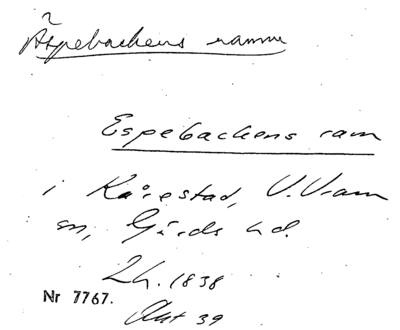 Äspebackens ramm
Espebackens ram
i Kårestad, V. Vram
sn, Gärds hd.
Lh. 1838
Nr 7767.
Akt 39